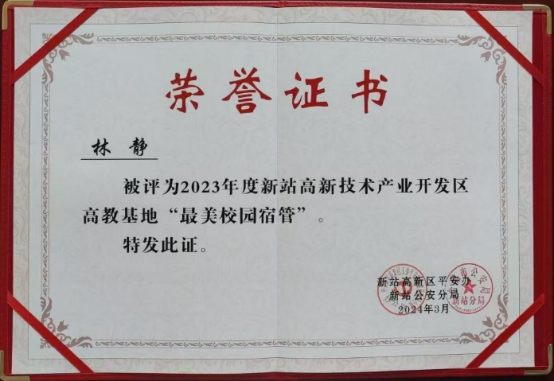 荣誉证书
林 静
被评为2023年度新站高新技术产业开发区
高教基地“最美校园宿管”。
特发此证。
新站高新区平安办
新站公安分局
2024年3月
新站分局